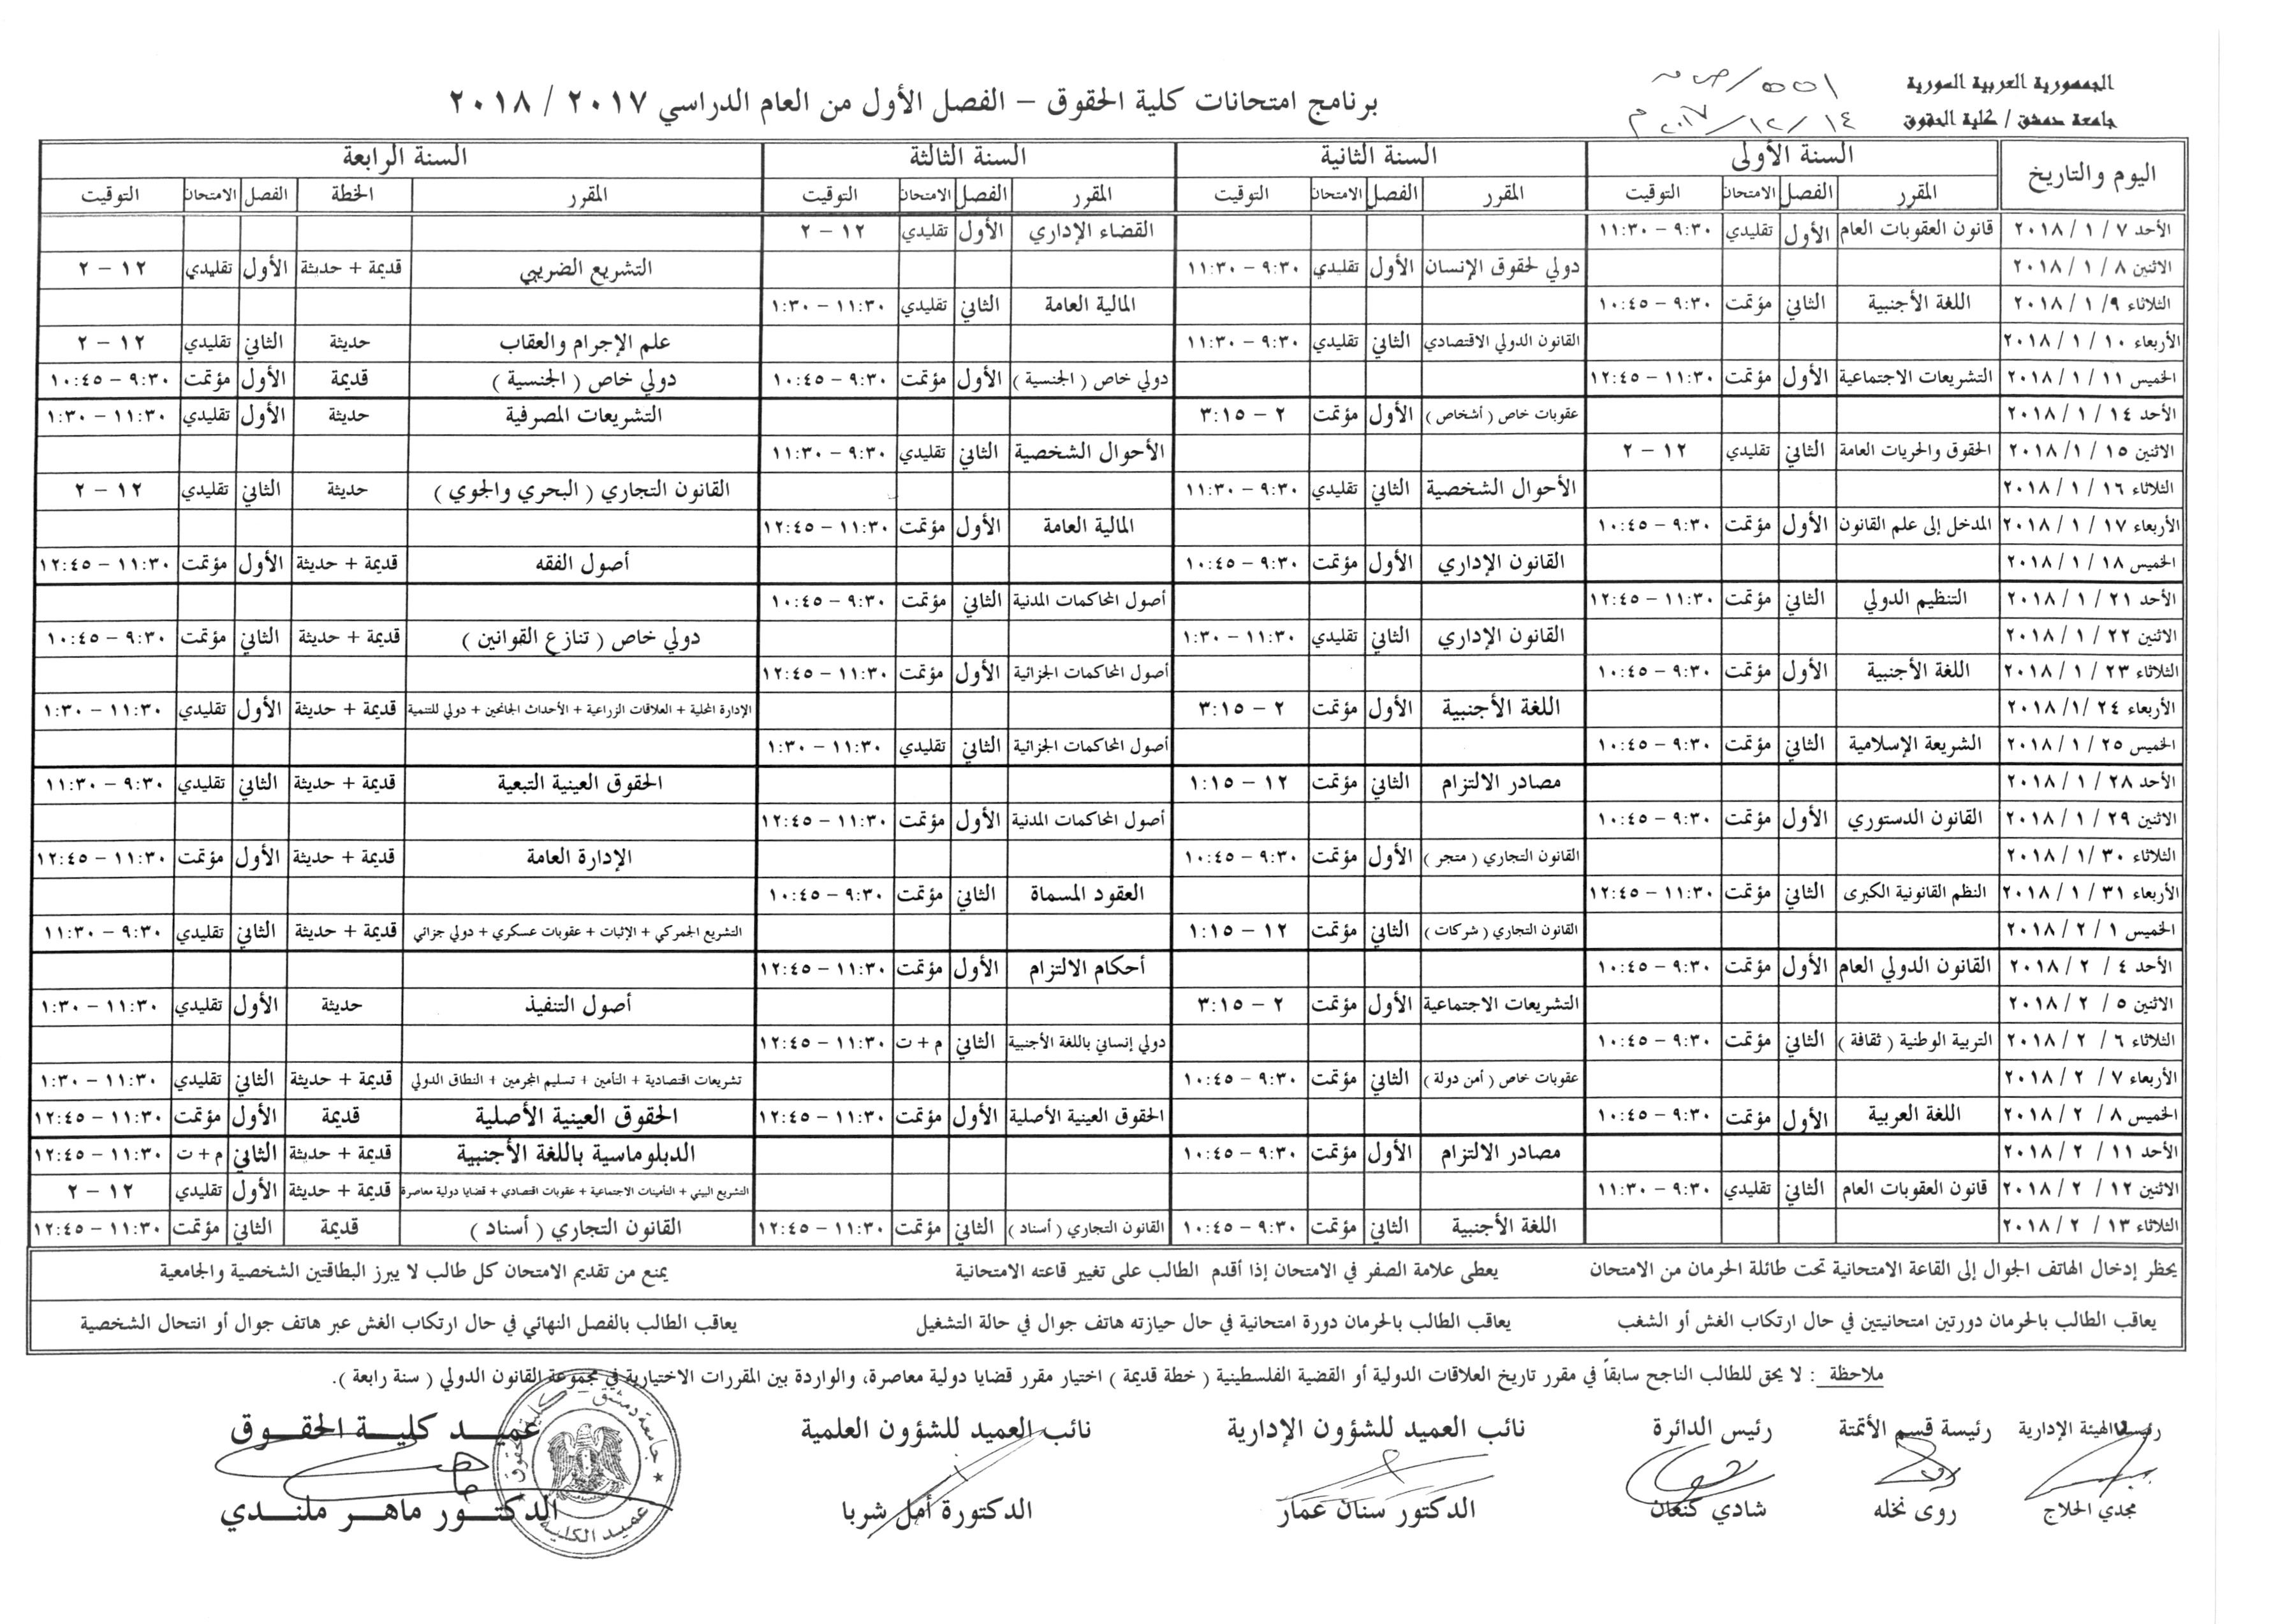 الجمهورية العربية السورية
جامعة دمشق / كلية الحقوق
٥٥١/ص م
١٤ / ١٢ / ٢٠١٧ م
برنامج امتحانات كلية الحقوق – الفصل الأول من العام الدراسي ٢٠١٧ / ٢٠١٨
اليوم والتاريخ السنة الأولى السنة الثانية السنة الثالثة السنة الرابعة
المقرر الفصل الامتحان التوقيت المقرر الفصل الامتحان التوقيت المقرر الفصل الامتحان التوقيت المقرر الخطة الفصل الامتحان التوقيت
الأحد ٧ / ١ / ٢٠١٨ قانون العقوبات العام الأول تقليدي ٩:٣٠ – ١١:٣٠ القضاء الإداري الأول تقليدي ١٢ – ٢
الاثنين ٨ / ١ / ٢٠١٨ دولي لحقوق الإنسان الأول تقليدي ٩:٣٠ – ١١:٣٠ التشريع الضريبي قديمة + حديثة الأول تقليدي ١٢ – ٢
الثلاثاء ٩/ ١ / ٢٠١٨ اللغة الأجنبية الثاني مؤتمت ٩:٣٠ – ١٠:٤٥ المالية العامة الثاني تقليدي ١١:٣٠ – ١:٣٠
الأربعاء ١٠ / ١ / ٢٠١٨ القانون الدولي الاقتصادي الثاني تقليدي ٩:٣٠ – ١١:٣٠ علم الإجرام والعقاب حديثة الثاني تقليدي ١٢ – ٢
الخميس ١١ / ١ / ٢٠١٨ التشريعات الاجتماعية الأول مؤتمت ١١:٣٠ – ١٢:٤٥ دولي خاص ( الجنسية ) الأول مؤتمت ٩:٣٠ – ١٠:٤٥ دولي خاص ( الجنسية ) قديمة الأول مؤتمت ٩:٣٠ – ١٠:٤٥
الأحد ١٤ / ١ / ٢٠١٨ عقوبات خاص ( أشخاص ) الأول مؤتمت ٢ – ٣:١٥ التشريعات المصرفية حديثة الأول تقليدي ١١:٣٠ – ١:٣٠
الاثنين ١٥ / ١/ ٢٠١٨ الحقوق والحريات العامة الثاني تقليدي ١٢ – ٢ الأحوال الشخصية الثاني تقليدي ٩:٣٠ – ١١:٣٠
الثلاثاء ١٦ / ١ / ٢٠١٨ الأحوال الشخصية الثاني تقليدي ٩:٣٠ – ١١:٣٠ القانون التجاري ( البحري والجوي ) حديثة الثاني تقليدي ١٢ – ٢
الأربعاء ١٧ / ١ / ٢٠١٨ المدخل إلى علم القانون الأول مؤتمت ٩:٣٠ – ١٠:٤٥ المالية العامة الأول مؤتمت ١١:٣٠ – ١٢:٤٥
الخميس ١٨ / ١ / ٢٠١٨ القانون الإداري الأول مؤتمت ٩:٣٠ – ١٠:٤٥ أصول الفقه قديمة + حديثة الأول مؤتمت ١١:٣٠ – ١٢:٤٥
الأحد ٢١ / ١ / ٢٠١٨ التنظيم الدولي الثاني مؤتمت ١١:٣٠ – ١٢:٤٥ أصول المحاكمات المدنية الثاني مؤتمت ٩:٣٠ – ١٠:٤٥
الاثنين ٢٢ / ١ / ٢٠١٨ القانون الإداري الثاني تقليدي ١١:٣٠ – ١:٣٠ دولي خاص ( تنازع القوانين ) قديمة + حديثة الثاني مؤتمت ٩:٣٠ – ١٠:٤٥
الثلاثاء ٢٣ / ١ / ٢٠١٨ اللغة الأجنبية الأول مؤتمت ٩:٣٠ – ١٠:٤٥ أصول المحاكمات الجزائية الأول مؤتمت ١١:٣٠ – ١٢:٤٥
الأربعاء ٢٤ /١/ ٢٠١٨ اللغة الأجنبية الأول مؤتمت ٢ – ٣:١٥ الإدارة المحلية + العلاقات الزراعية + الأحداث الجانحين + دولي للتنمية قديمة + حديثة الأول تقليدي ١١:٣٠ – ١:٣٠
الخميس ٢٥ / ١ / ٢٠١٨ الشريعة الإسلامية الثاني مؤتمت ٩:٣٠ – ١٠:٤٥ أصول المحاكمات الجزائية الثاني تقليدي ١١:٣٠ – ١:٣٠
الأحد ٢٨ / ١ / ٢٠١٨ مصادر الالتزام الثاني مؤتمت ١٢ – ١:١٥ الحقوق العينية التبعية قديمة + حديثة الثاني تقليدي ٩:٣٠ – ١١:٣٠
الاثنين ٢٩ / ١ / ٢٠١٨ القانون الدستوري الأول مؤتمت ٩:٣٠ – ١٠:٤٥ أصول المحاكمات المدنية الأول مؤتمت ١١:٣٠ – ١٢:٤٥
الثلاثاء ٣٠ / ١/ ٢٠١٨ القانون التجاري ( متجر ) الأول مؤتمت ٩:٣٠ – ١٠:٤٥ الإدارة العامة قديمة + حديثة الأول مؤتمت ١١:٣٠ – ١٢:٤٥
الأربعاء ٣١ / ١ / ٢٠١٨ النظم القانونية الكبرى الثاني مؤتمت ١١:٣٠ – ١٢:٤٥ العقود المسماة الثاني مؤتمت ٩:٣٠ – ١٠:٤٥
الخميس ١ / ٢ / ٢٠١٨ القانون التجاري ( شركات ) الثاني مؤتمت ١٢ – ١:١٥ التشريع الجمركي + الإثبات + عقوبات عسكري + دولي جزائي قديمة + حديثة الثاني تقليدي ٩:٣٠ – ١١:٣٠
الأحد ٤ / ٢ / ٢٠١٨ القانون الدولي العام الأول مؤتمت ٩:٣٠ – ١٠:٤٥ أحكام الالتزام الأول مؤتمت ١١:٣٠ – ١٢:٤٥
الاثنين ٥ / ٢ / ٢٠١٨ التشريعات الاجتماعية الأول مؤتمت ٢ – ٣:١٥ أصول التنفيذ حديثة الأول تقليدي ١١:٣٠ – ١:٣٠
الثلاثاء ٦ / ٢ / ٢٠١٨ التربية الوطنية ( ثقافة ) الثاني مؤتمت ٩:٣٠ – ١٠:٤٥ دولي إنساني باللغة الأجنبية الثاني م + ت ١١:٣٠ – ١٢:٤٥
الأربعاء ٧ / ٢ / ٢٠١٨ عقوبات خاص ( أمن دولة ) الثاني مؤتمت ٩:٣٠ – ١٠:٤٥ تشريعات اقتصادية + التأمين + تسليم المجرمين + النطاق الدولي قديمة + حديثة الثاني تقليدي ١١:٣٠ – ١:٣٠
الخميس ٨ / ٢ / ٢٠١٨ اللغة العربية الأول مؤتمت ٩:٣٠ – ١٠:٤٥ الحقوق العينية الأصلية الأول مؤتمت ١١:٣٠ – ١٢:٤٥ الحقوق العينية الأصلية قديمة الأول مؤتمت ١١:٣٠ – ١٢:٤٥
الأحد ١١ / ٢ / ٢٠١٨ مصادر الالتزام الأول مؤتمت ٩:٣٠ – ١٠:٤٥ الدبلوماسية باللغة الأجنبية قديمة + حديثة الثاني م + ت ١١:٣٠ – ١٢:٤٥
الاثنين ١٢ / ٢ / ٢٠١٨ قانون العقوبات العام الثاني تقليدي ٩:٣٠ – ١١:٣٠ التشريع البيئي + التأمينات الاجتماعية + عقوبات اقتصادي + قضايا دولية معاصرة قديمة + حديثة الأول تقليدي ١٢ – ٢
الثلاثاء ١٣ / ٢ / ٢٠١٨ اللغة الأجنبية الثاني مؤتمت ٩:٣٠ – ١٠:٤٥ القانون التجاري ( أسناد ) الثاني مؤتمت ١١:٣٠ – ١٢:٤٥ القانون التجاري ( أسناد ) قديمة الثاني مؤتمت ١١:٣٠ – ١٢:٤٥
يحظر إدخال الهاتف الجوال إلى القاعة الامتحانية تحت طائلة الحرمان من الامتحان يعطى علامة الصفر في الامتحان إذا أقدم الطالب على تغيير قاعته الامتحانية يمنع من تقديم الامتحان كل طالب لا يبرز البطاقتين الشخصية والجامعية
يعاقب الطالب بالحرمان دورتين امتحانيتين في حال ارتكاب الغش أو الشغب يعاقب الطالب بالحرمان دورة امتحانية في حال حيازته هاتف جوال في حالة التشغيل يعاقب الطالب بالفصل النهائي في حال ارتكاب الغش عبر هاتف جوال أو انتحال الشخصية
ملاحظة : لا يحق للطالب الناجح سابقاً في مقرر تاريخ العلاقات الدولية أو القضية الفلسطينية ( خطة قديمة ) اختيار مقرر قضايا دولية معاصرة، والواردة بين المقررات الاختيارية في مجموعة القانون الدولي ( سنة رابعة ).
رئيس الهيئة الإدارية رئيسة قسم الأتمتة رئيس الدائرة نائب العميد للشؤون الإدارية نائب العميد للشؤون العلمية عميد كلية الحقوق
مجدي الحلاج روى نخله شادي كنعان الدكتور سنان عمار الدكتورة أمل شربا الدكتور ماهر ملندي
جامعة دمشق - كلية الحقوق
عميد الكلية